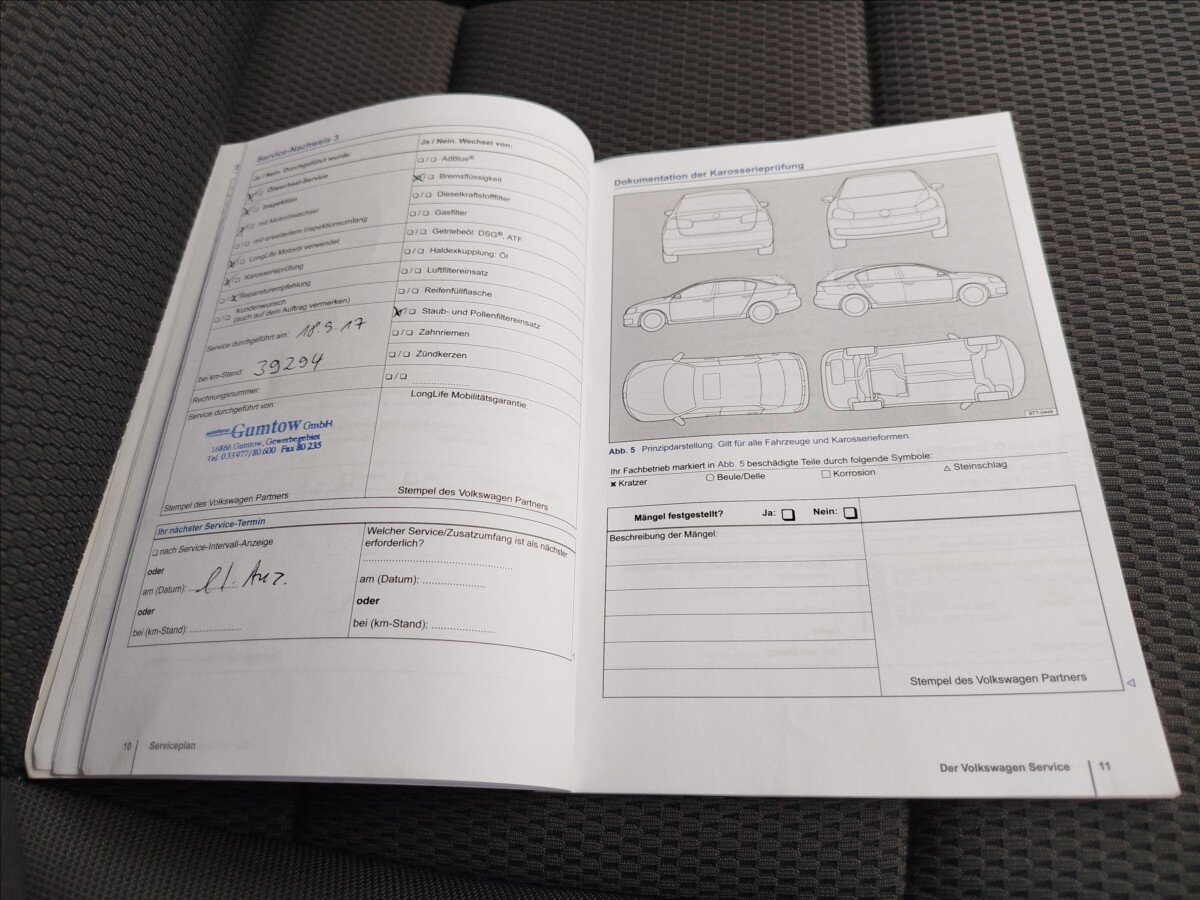 Service-Nachweis 3
Ja / Nein. Durchgeführt wurde:
Ölwechsel-Service
Inspektion
mit Motorölwechsel
mit erweitertem Inspektionsumfang
LongLife Motoröl verwendet
Karosserieprüfung
Reparaturempfehlung
Kundenwunsch
(auch auf dem Auftrag vermerken)
Service durchgeführt am: 18.9.17
bei km-Stand: 39294
Rechnungsnummer:
Service durchgeführt von:
Gumtow GmbH
16866 Gumtow, Gewerbegebiet
Tel. 033977/80 600 Fax 80 235
Stempel des Volkswagen Partners
Ja / Nein. Wechsel von:
AdBlue®
Bremsflüssigkeit
Dieselkraftstofffilter
Gasfilter
Getriebeöl: DSG®, ATF
Haldexkupplung: Öl
Luftfiltereinsatz
Reifenfüllflasche
Staub- und Pollenfiltereinsatz
Zahnriemen
Zündkerzen
LongLife Mobilitätsgarantie:
Stempel des Volkswagen Partners
Ihr nächster Service-Termin
nach Service-Intervall-Anzeige
oder
am (Datum):
oder
bei (km-Stand):
Welcher Service/Zusatzumfang ist als nächster
erforderlich?
am (Datum):
oder
bei (km-Stand):
10 Serviceplan
Dokumentation der Karosserieprüfung
BTT-0448
Abb. 5 Prinzipdarstellung. Gilt für alle Fahrzeuge und Karosserieformen.
Ihr Fachbetrieb markiert in Abb. 5 beschädigte Teile durch folgende Symbole:
Kratzer Beule/Delle Korrosion Steinschlag
Mängel festgestellt? Ja: Nein:
Beschreibung der Mängel:
Stempel des Volkswagen Partners
Der Volkswagen Service 11